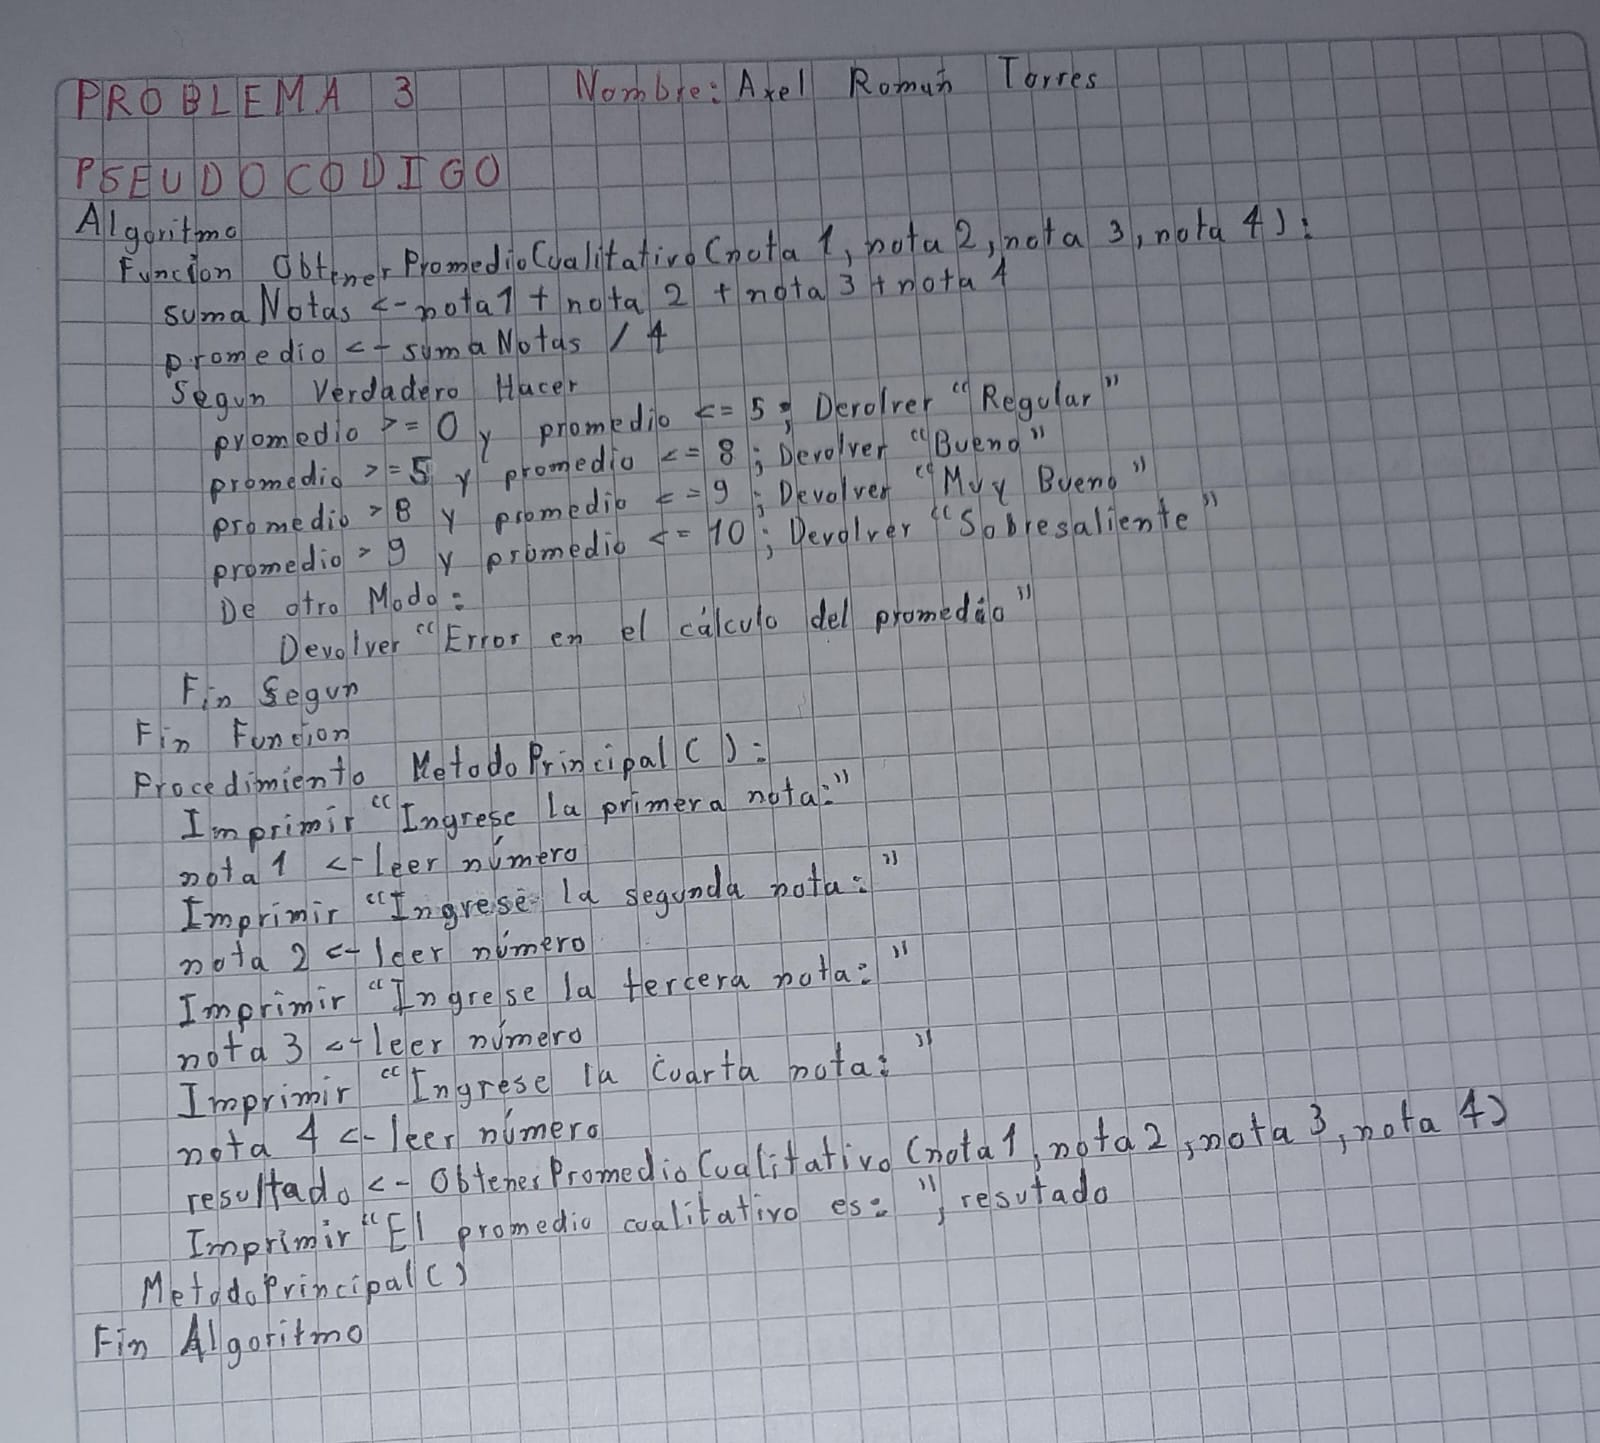 PROBLEMA 3 Nombre: Axel Román Torres
PSEUDOCODIGO
Algoritmo
Funcion ObtenerPromedioCualitativo(nota 1, nota 2, nota 3, nota 4):
suma Notas <- nota1 + nota 2 + nota 3 + nota 4
promedio <- suma Notas / 4
Segun Verdadero Hacer
promedio >= 0 y promedio <= 5; Devolver "Regular"
promedio >= 5 y promedio <= 8; Devolver "Bueno"
promedio > 8 y promedio <= 9; Devolver "Muy Bueno"
promedio > 9 y promedio <= 10; Devolver "Sobresaliente"
De otro Modo:
Devolver "Error en el cálculo del promedio"
Fin Segun
Fin Funcion
Procedimiento MetodoPrincipal():
Imprimir "Ingrese la primera nota:"
nota 1 <- leer número
Imprimir "Ingrese la segunda nota:"
nota 2 <- leer número
Imprimir "Ingrese la tercera nota:"
nota 3 <- leer número
Imprimir "Ingrese la cuarta nota:"
nota 4 <- leer número
resultado <- ObtenerPromedioCualitativo (nota1, nota2, nota 3, nota 4)
Imprimir "El promedio cualitativo es:", resutado
MetodoPrincipal()
Fin Algoritmo